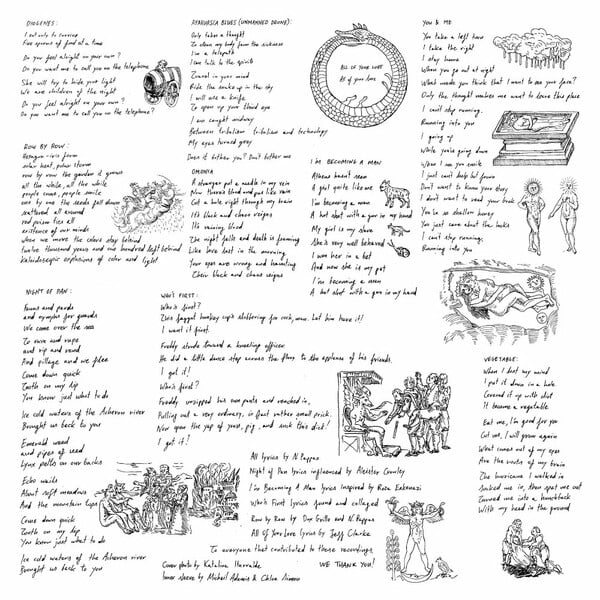 DIOGENES:
I eat only to survive
Five spoons of food at a time
Do you feel alright on your own?
Do you want me to call you on the telephone
She will try to hide your light
We are children of the night
Do you feel alright on your own?
Do you want me to call you on the telephone?
ROW BY ROW:
Hexagon - iris form
solar heat, polar storm
row by row the garden it grows
all the while, all the while
people come, people smile
one by one the seeds fall down
scattered all around
red prism ties all
existence of our minds
when we move the colors stay behind
twelve thousand years and one hundred left behind
kaleidoscopic explosions of color and light
(UNMANNED DRONE):
Only takes a thought
To clean my body from the sickness
I'm a telepath
I can talk to the spirits
Travel in your mind
Ride the snake up in the sky
I will use a knife
To open up your third eye
I am caught midway
Between tribalism tribalism and technology
My eyes turned grey
Does it bother you? Don't bother me
OMONIA
A stranger put a needle in my vein
Now there's blood and pus like rain
Got a hole right through my brain
It's black and chaos reigns
It's raining blood
The night falls and death is foaming
Like love lost in the morning
Your eyes are wrong and haunting
Their black and chaos reigns
ALL OF YOUR LOVE
All of your love
I'm BECOMING A MAN
Athens haven't seen
A girl quite like me
I'm becoming a man
A hot shot with a gun in my hand
My girl is my slave
She is very well behaved
I won her in a bet
And now she is my pet
I'm becoming a man
A hot shot with a gun in my hand
YOU & ME
You take a left turn
I take the right
I stay home
When you go out at night
What makes you think that I want to see your face?
Only the thought makes me want to leave this place
I can't stop running
Running into you
I going up
While you're going down
When I see you smile
I just can't help but frown
Don't want to know your story
I don't want to read your book
You're so shallow honey
You just care about the looks
I can't stop running
Running into you
NIGHT OF PAN:
Fauns and pards
and nymphs for guards
We come over the sea
To rave and rape
and rip and rend
And pillage and we flee
Come down quick
Tooth on my lip
You know just what to do
Ice cold waters of the Acheron river
Brought us back to you
Emerald weed
and pipes of reed
Lynx pelts on our backs
Echo waits
About soft meadows
And the mountain tops
Come down quick
Tooth on my lip
You know just what to do
Ice cold waters of the Acheron river
Brought us back to you
WHO'S FIRST:
Who's first?
This faggot honkey cop's slobbering for cock, man. Let him have it!
I want it first.
Freddy strode toward a kneeling officer
He did a little dance step across the floor, to the applause of his friends.
I got it!
Who's first?
Freddy unzipped his own pants and reached in,
Pulling out a very ordinary, in fact rather small prick.
Now open the yap of yours, pig, and suck this dick!
I got it!
All lyrics by N. Pappas
Night of Pan lyrics influenced by Aleister Crowley
I'm Becoming A Man lyrics inspired by Roza Eskenazi
Who's First lyrics found and collaged
Row by Row by Don Gullo and N. Pappas
All Of Your Love lyrics by Jeff Clarke
To everyone that contributed to these recordings
WE THANK YOU!
Cover photo by Katalina
Inner sleeve by & Chloe
VEGETABLE:
When I lost my mind
I put it down in a hole
Covered it up with dirt
It became a vegetable
Eat me, I'm good for you
Cut me, I will grow again
What comes out of my eyes
Are the roots of my brain
The hurricane I walked in
Sucked me in, then spat me out
Turned me into a hunchback
With my head in the ground